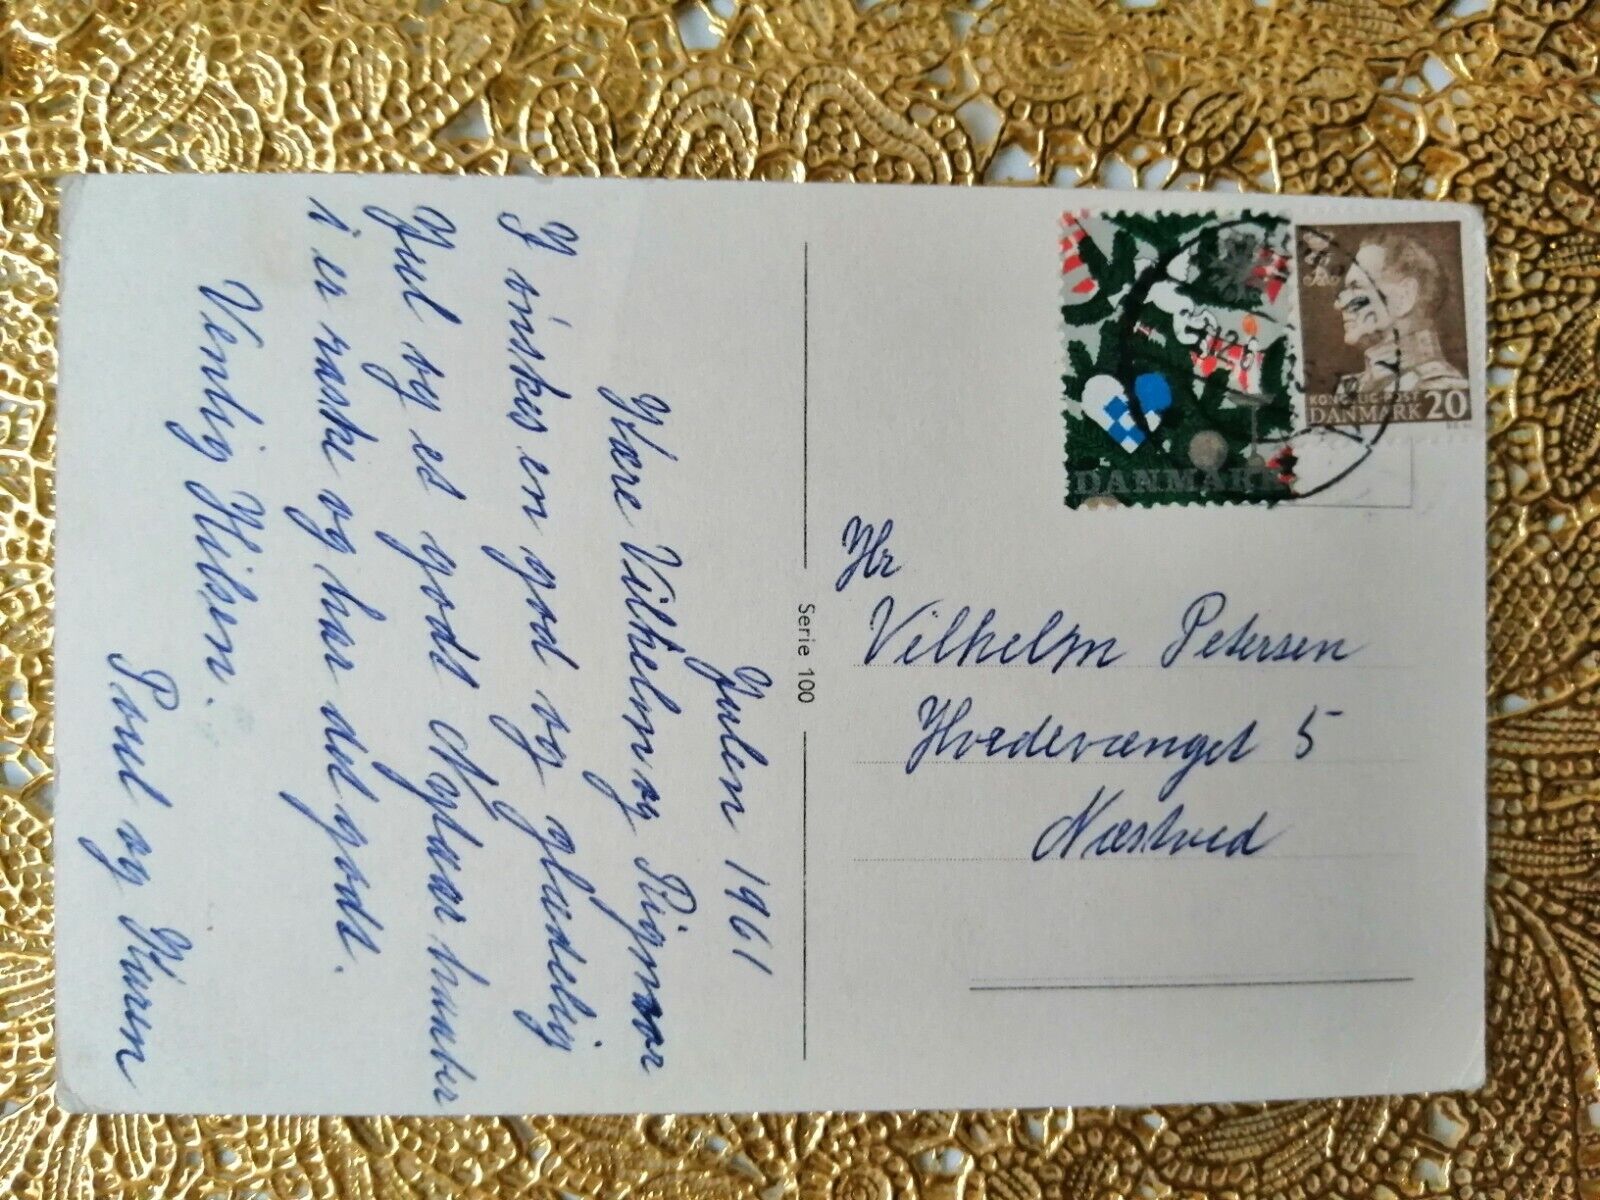 Julen 1961
Kære Vilhelm og Rigmor
I ønskes en god og glædelig
Jul og et godt Nytaar haaber
i er raske og har det godt.
Venlig Hilsen.
Poul og Karen
Serie 100
DANMARK
KONGELIG POST
DANMARK 20
Hr
Vilhelm Petersen
Hvedevænget 5
Næstved